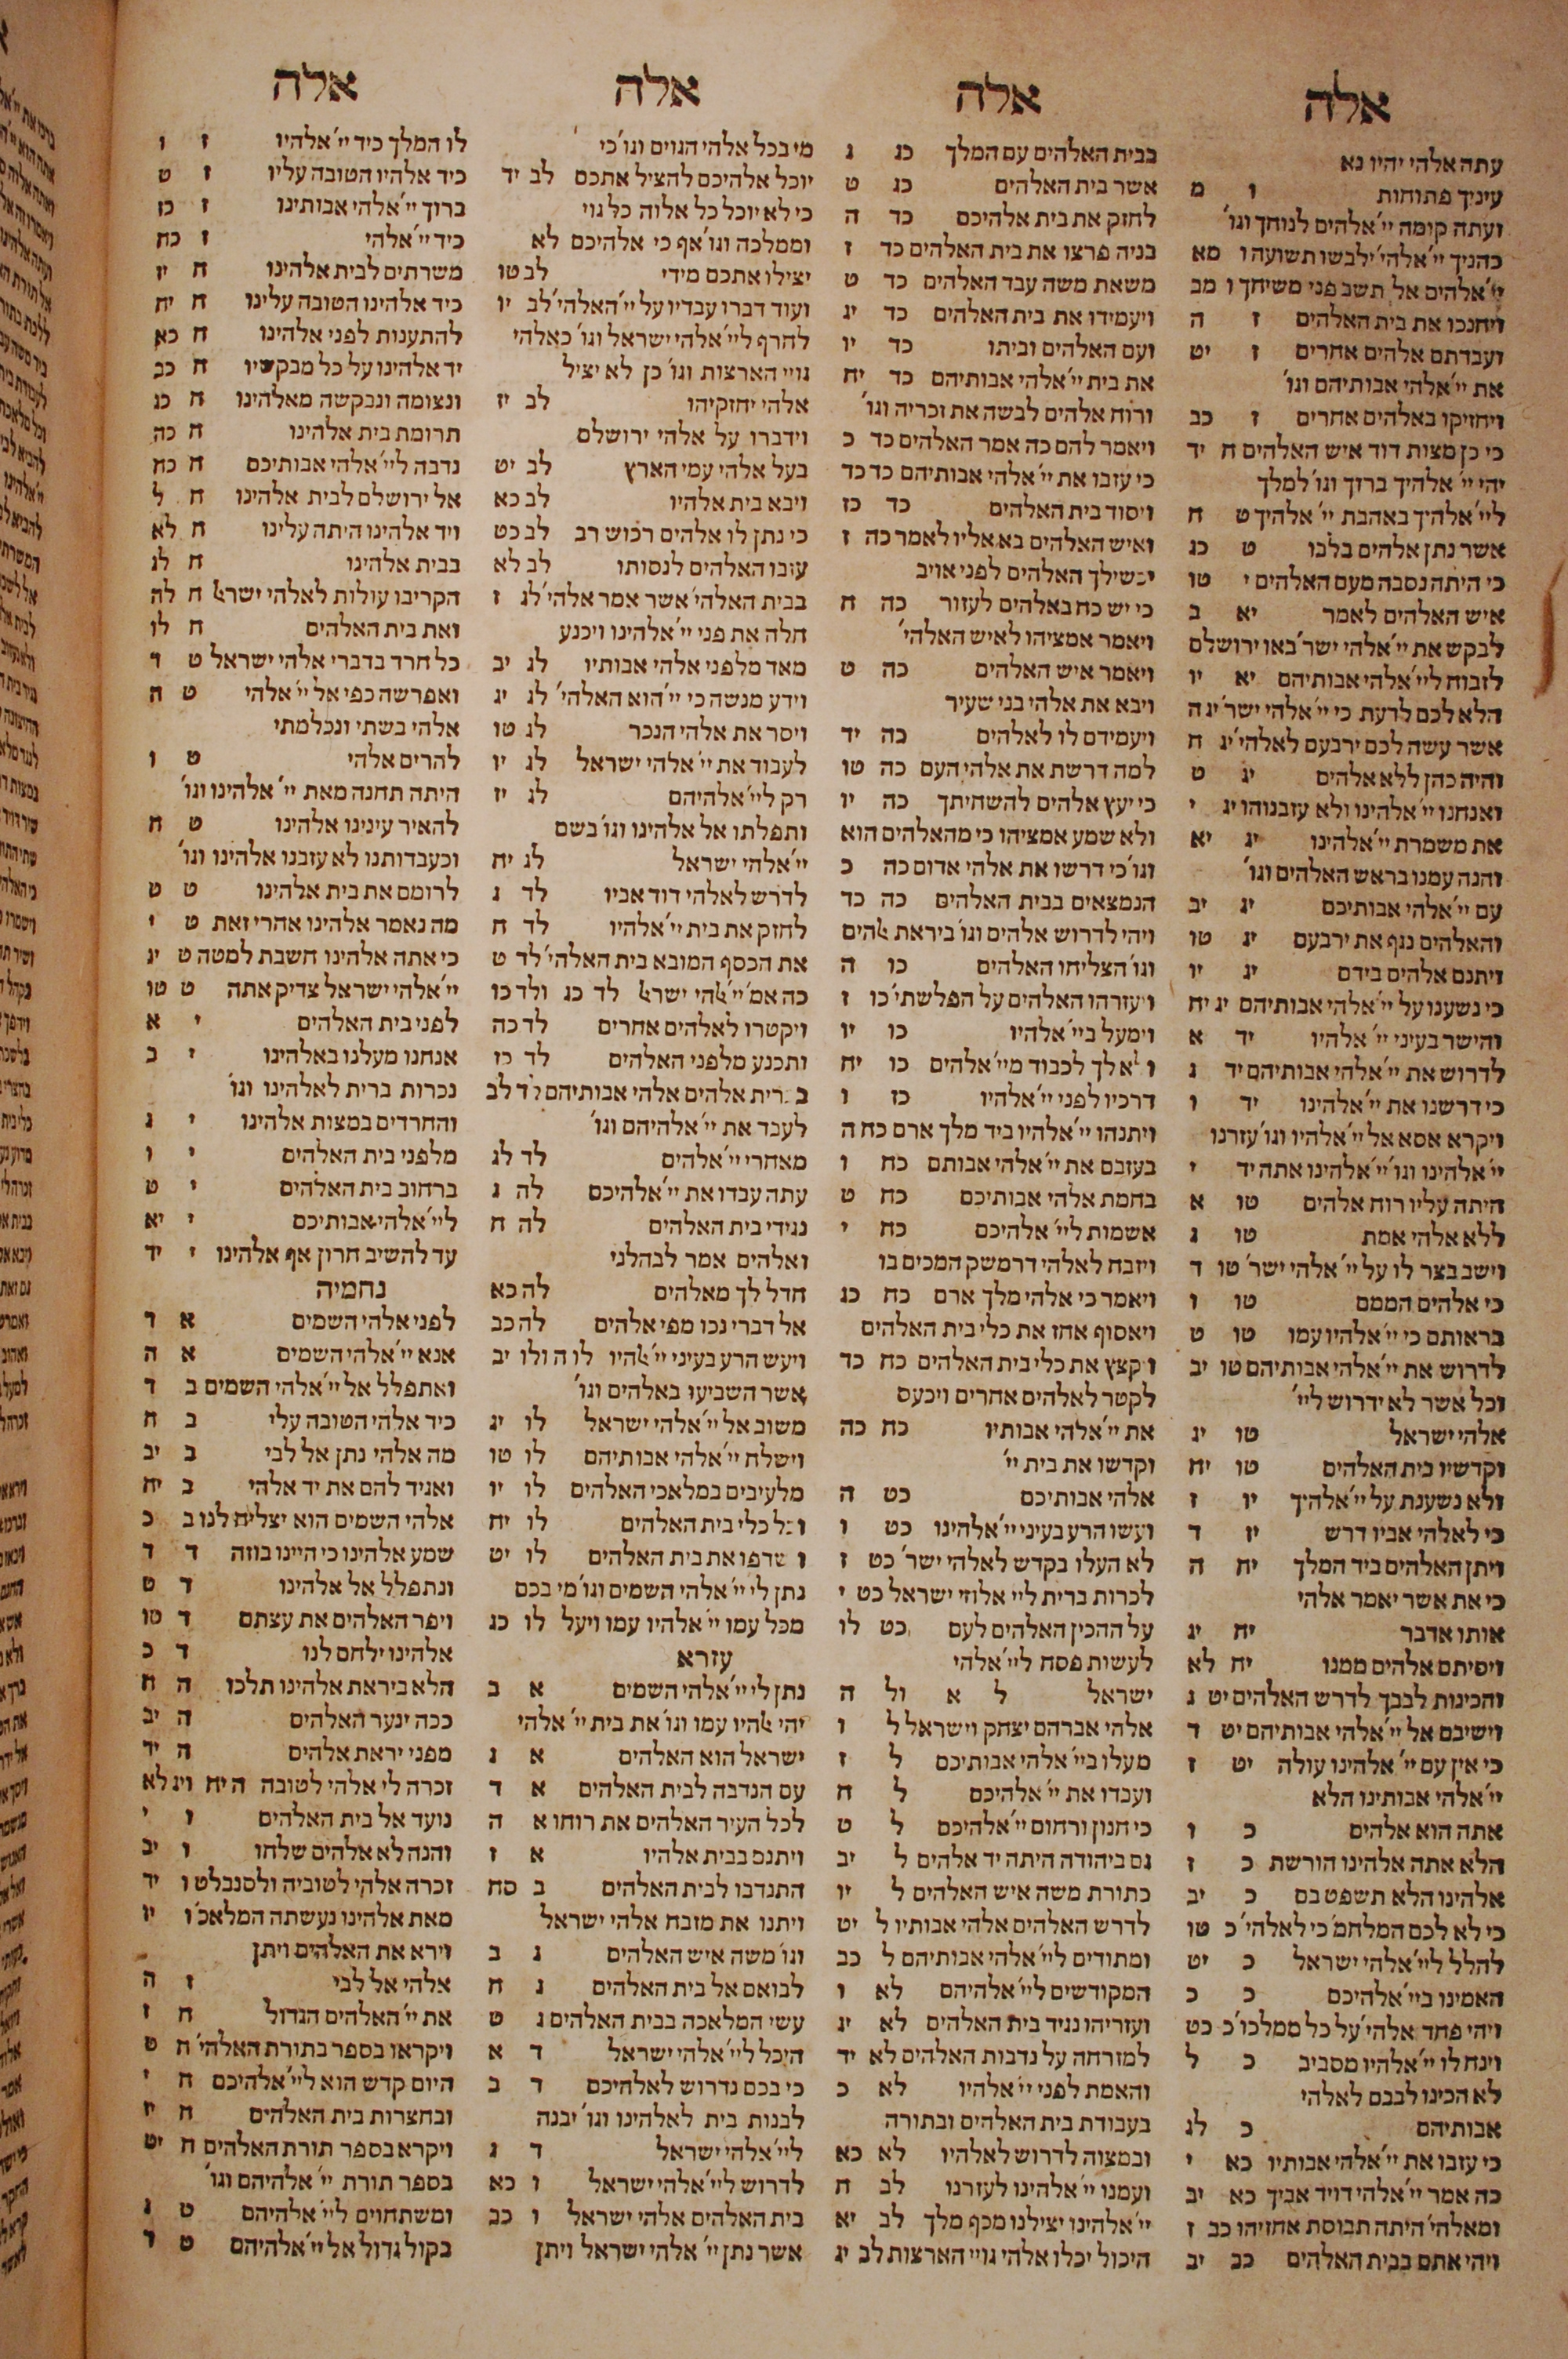 אלה
עתה אלהי יהיו נא
עיניך פתוחות ו מ
ועתה קומה יי׳אלהים לנוחך וגו׳
כהניך יי׳אלהי׳ילבשו תשועה ו מא
יי׳אלהים אל תשב פני משיחך ו מב
ויחנכו את בית האלהים ז ה
ועבדתם אלהים אחרים ז יט
את יי׳אלהי אבותיהם וגו׳
ויחזיקו באלהים אחרים ז כב
כי כן מצות דוד איש האלהים ח יד
יהי יי׳ אלהיך ברוך וגו׳ למלך
ליי׳אלהיך באהבת יי׳ אלהיך ט ח
אשר נתן אלהים בלבו ט כג
כי היתה נסבה מעם האלהים י טו
איש האלהים לאמר יא ב
לבקש את יי׳אלהי ישר׳ באו ירושלם
לזבוח ליי׳אלהי אבותיהם יא יו
הלא לכם לדעת כי יי׳אלהי ישר׳ יג ה
אשר עשה לכם ירבעם לאלהי׳ יג ח
והיה כהן ללא אלהים יג ט
ואנחנו יי׳אלהינו ולא עזבנוהו יג י
את משמרת יי׳אלהינו יג יא
והנה עמנו בראש האלהים וגו׳
עם יי׳אלהי אבותיכם יג יב
והאלהים נגף את ירבעם יג טו
ויתנם אלהים בידם יג יו
כי נשענו על יי׳אלהי אבותיהם יג יח
והישר בעיני יי׳ אלהיו יד א
לדרוש את יי׳אלהי אבותיהם יד ג
כי דרשנו את יי׳אלהינו יד ו
ויקרא אסא אל יי׳אלהיו וגו׳ עזרנו
יי׳אלהינו וגו׳ יי׳אלהינו אתה יד י
היתה עליו רוח אלהים טו א
ללא אלהי אמת טו ג
וישב בצר לו על יי׳אלהי ישר׳ טו ד
כי אלהים הממם טו ו
בראותם כי יי׳אלהיו עמו טו ט
לדרוש את יי׳אלהי אבותיהם טו יב
וכל אשר לא ידרוש ליי׳
אלהי ישראל טו יג
וקדשיו בית האלהים טו יח
ולא נשענת על יי׳אלהיך יו ז
כי לאלהי אביו דרש יז ד
ויתן האלהים ביד המלך יח ה
כי את אשר יאמר אלהי
אותו אדבר יח יג
ויסיתם אלהים ממנו יח לא
והכינות לבבך לדרש האלהים יט ג
וישיבם אל יי׳אלהי אבותיהם יט ד
כי אין עם יי׳ אלהינו עולה יט ז
יי׳אלהי אבותינו הלא
אתה הוא אלהים כ ו
הלא אתה אלהינו הורשת כ ז
אלהינו הלא תשפט בם כ יב
כי לא לכם המלחמ׳ כי לאלהי׳ כ טו
להלל ליי׳אלהי ישראל כ יט
האמינו ביי׳אלהיכם כ כ
ויהי פחד אלהי׳ על כל ממלכו׳ כ כט
וינח לו יי׳אלהיו מסביב כ ל
לא הכינו לבבם לאלהי
אבותיהם כ לג
כי עזבו את יי׳אלהי אבותיו כא י
כה אמר יי׳אלהי דויד אביך כא יב
ומאלהי׳ היתה תבוסת אחזיהו כב ז
ויהי אתם בבית האלהים כב יב
אלה
בבית האלהים עם המלך כג ג
אשר בית האלהים כג ט
לחזק את בית אלהיכם כד ה
בניה פרצו את בית האלהים כד ז
משאת משה עבד האלהים כד ט
ויעמידו את בית האלהים כד יג
ועם האלהים וביתו כד יו
את בית יי׳אלהי אבותיהם כד יח
ורוח אלהים לבשה את זכריה וגו׳
ויאמר להם כה אמר האלהים כד כ
כי עזבו את יי׳אלהי אבותיהם כד כד
ויסוד בית האלהים כד כז
ואיש האלהים בא אליו לאמר כה ז
יכשילך האלהים לפני אויב
כי יש כח באלהים לעזור כה ח
ויאמר אמציהו לאיש האלהי׳
ויאמר איש האלהים כה ט
ויבא את אלהי בני שעיר
ויעמידם לו לאלהים כה יד
למה דרשת את אלהי העם כה טו
כי יעץ אלהים להשחיתך כה יו
ולא שמע אמציהו כי מהאלהים הוא
וגו׳ כי דרשו את אלהי אדום כה כ
הנמצאים בבית האלהים כה כד
ויהי לדרוש אלהים וגו׳ ביראת ﭏהים
וגו׳ הצליחו האלהים כו ה
ויעזרהו האלהים על הפלשתי׳ כו ז
וימעל ביי׳אלהיו כו יו
ולא לך לכבוד מיי׳אלהים כו יח
דרכיו לפני יי׳אלהיו כז ו
ויתנהו יי׳אלהיו ביד מלך ארם כח ה
בעזבם את יי׳אלהי אבותם כח ו
בחמת אלהי אבותיכם כח ט
אשמות ליי׳ אלהיכם כח י
ויזבח לאלהי דרמשק המכים בו
ויאמר כי אלהי מלך ארם כח כג
ויאסוף אחז את כלי בית האלהים
וקצץ את כלי בית האלהים כח כד
לקטר לאלהים אחרים ויכעס
את יי׳אלהי אבותיו כח כה
וקדשו את בית יי׳
אלהי אבותיכם כט ה
ועשו הרע בעיני יי׳אלהינו כט ו
לא העלו בקדש לאלהי ישר׳ כט ז
לכרות ברית ליי אלהי ישראל כט י
על ההכין האלהים לעם כט לו
לעשות פסח ליי׳אלהי
ישראל ל א ול ה
אלהי אברהם יצחק וישראל ל ו
מעלו ביי׳ אלהי אבותיכם ל ז
ועבדו את יי׳אלהיכם ל ח
כי חנון ורחום יי׳אלהיכם ל ט
גם ביהודה היתה יד אלהים ל יב
כתורת משה איש האלהים ל יו
לדרש האלהים אלהי אבותיו ל יט
ומתודים ליי׳אלהי אבותיהם ל כב
המקודשים ליי׳אלהיהם לא ו
ועזריהו נגיד בית האלהים לא יג
למזרחה על נדבות האלהים לא יד
והאמת לפני יי׳אלהיו לא כ
בעבודת בית האלהים ובתורה
ובמצוה לדרוש לאלהיו לא כא
ועמנו יי׳אלהינו לעזרנו לב ח
יי׳אלהינו יצילנו מכף מלך לב יא
היכול יכלו אלהי גויי הארצות לב יג
אלה
מי בכל אלהי הגוים וגו׳ כי
יוכל אלהיכם להציל אתכם לב יד
כי לא יוכל כל אלוה כל גוי
וממלכה וגו׳ אף כי אלהיכם לא
יצילו אתכם מידי לב טו
ועוד דברו עבדיו על יי׳האלהי׳ לב יו
לחרף ליי׳אלהי ישראל וגו׳ כאלהי
גויי הארצות וגו׳ כן לא יציל
אלהי יחזקיהו לב יז
וידברו על אלהי ירושלם
בעל אלהי עמי הארץ לב יט
ויבא בית אלהיו לב כא
כי נתן לו אלהים רכוש רב לב כט
עזבו האלהים לנסותו לב לא
בבית האלהי׳ אשר אמר אלהי׳ לג ז
חלה את פני יי׳אלהינו ויכנע
מאד מלפני אלהי אבותיו לג יב
וידע מנשה כי יי׳הוא האלהי׳ לג יג
ויסר את אלהי הנכר לג טו
לעבוד את יי׳אלהי ישראל לג יו
רק ליי׳אלהיהם לג יז
ותפלתו אל אלהינו וגו׳ בשם
יי׳אלהי ישראל לג יח
לדרש לאלהי דוד אביו לד ג
לחזק את בית יי׳אלהיו לד ח
את הכסף המובא בית האלהי׳ לד ט
כה אמ׳ יי׳ﭏהי ישרﭏ לד כג ולד כו
ויקטרו לאלהים אחרים לד כה
ותכנע מלפני האלהים לד כז
ברית אלהים אלהי אבותיהם לד לב
לעבד את יי׳אלהיהם וגו׳
מאחרי יי׳אלהים לד לג
עתה עבדו את יי׳אלהיכם לה ג
נגידי בית האלהים לה ח
ואלהים אמר לבהלני
חדל לך מאלהים לה כא
אל דברי נכו מפי אלהים לה כב
ויעש הרע בעיני יי׳ﭏהיו לו ה ולו יב
אשר השביעו באלהים וגו׳
משוב אל יי׳אלהי ישראל לו יג
וישלח יי׳אלהי אבותיהם לו טו
מלעיבים במלאכי האלהים לו יו
וכל כלי בית האלהים לו יח
וישרפו את בית האלהים לו יט
נתן לי יי׳אלהי השמים וגו׳ מי בכם
מכל עמו יי׳אלהיו עמו ויעל לו כג
עזרא
נתן לי יי׳אלהי השמים א ב
יהי ﭏהיו עמו וגו׳ את בית יי׳ אלהי
ישראל הוא האלהים א ג
עם הנדבה לבית האלהים א ד
לכל העיר האלהים את רוחו א ה
ויתנם בבית אלהיו א ז
התנדבו לבית האלהים ב סח
ויתנו את מזבח אלהי ישראל
וגו׳ משה איש האלהים ג ב
לבואם אל בית האלהים ג ח
עשי המלאכה בבית האלהים ג ט
היכל ליי׳אלהי ישראל ד א
כי בכם נדרוש לאלהיכם ד ב
לבנות בית לאלהינו וגו׳ יבנה
ליי׳אלהי ישראל ד ג
לדרוש ליי׳אלהי ישראל ו כא
בית האלהים אלהי ישראל ו כב
אשר נתן יי׳ אלהי ישראל ויתן
אלה
לו המלך כיד יי׳אלהיו ז ו
כיד אלהיו הטובה עליו ז ט
ברוך יי׳אלהי אבותינו ז כז
כיד יי׳אלהי ז כח
משרתים לבית אלהינו ח יז
כיד אלהינו הטובה עלינו ח יח
להתענות לפני אלהינו ח כא
יד אלהינו על כל מבקשיו ח כב
ונצומה ונבקשה מאלהינו ח כג
תרומת בית אלהינו ח כה
נדבה ליי׳אלהי אבותיכם ח כח
אל ירושלם לבית אלהינו ח ל
ויד אלהינו היתה עלינו ח לא
בבית אלהינו ח לג
הקריבו עולות לאלהי ישרﭏ ח לה
ואת בית האלהים ח לו
כל חרד בדברי אלהי ישראל ט ד
ואפרשה כפי אל יי׳אלהי ט ה
אלהי בשתי ונכלמתי
להרים אלהי ט ו
היתה תחנה מאת יי׳ אלהינו וגו׳
להאיר עינינו אלהינו ט ח
וכעבדותנו לא עזבנו אלהינו וגו׳
לרומם את בית אלהינו ט ט
מה נאמר אלהינו אחרי זאת ט י
כי אתה אלהינו חשבת למטה ט יג
יי׳אלהי ישראל צדיק אתה ט טו
לפני בית האלהים י א
אנחנו מעלנו באלהינו י ב
נכרות ברית לאלהינו וגו׳
והחרדים במצות אלהינו י ג
מלפני בית האלהים י ו
ברחוב בית האלהים י ט
ליי׳אלהי אבותיכם י יא
עד להשיב חרון אף אלהינו י יד
נחמיה
לפני אלהי השמים א ד
אנא יי׳אלהי השמים א ה
ואתפלל אל יי׳אלהי השמים ב ד
כיד אלהי הטובה עלי ב ח
מה אלהי נתן אל לבי ב יב
ואגיד להם את יד אלהי ב יח
אלהי השמים הוא יצליח לנו ב כ
שמע אלהינו כי היינו בוזה ד ד
ונתפלל אל אלהינו ד ט
ויפר האלהים את עצתם ד טו
אלהינו ילחם לנו ד כ
הלא ביראת אלהינו תלכו ה ח
ככה ינער האלהים ה יב
מפני יראת אלהים ה יד
זכרה לי אלהי לטובה ה יח ויג לא
נועד אל בית האלהים ו י
והנה לא אלהים שלחו ו יב
זכרה אלהי לטוביה ולסנבלט ו יד
מאת אלהינו נעשתה המלאכ׳ ו יו
וירא את האלהים ויתן
אלהי אל לבי ז ה
את יי׳האלהים הגדול ח ו
ויקראו בספר בתורת האלהי׳ ח ט
היום קדש הוא ליי׳אלהיכם ח י
ובחצרות בית האלהים ח יז
ויקרא בספר תורת האלהים ח יט
בספר תורת יי׳ אלהיהם וגו׳
ומשתחוים ליי׳אלהיהם ט ג
בקול גדול אל יי׳אלהיהם ט ד